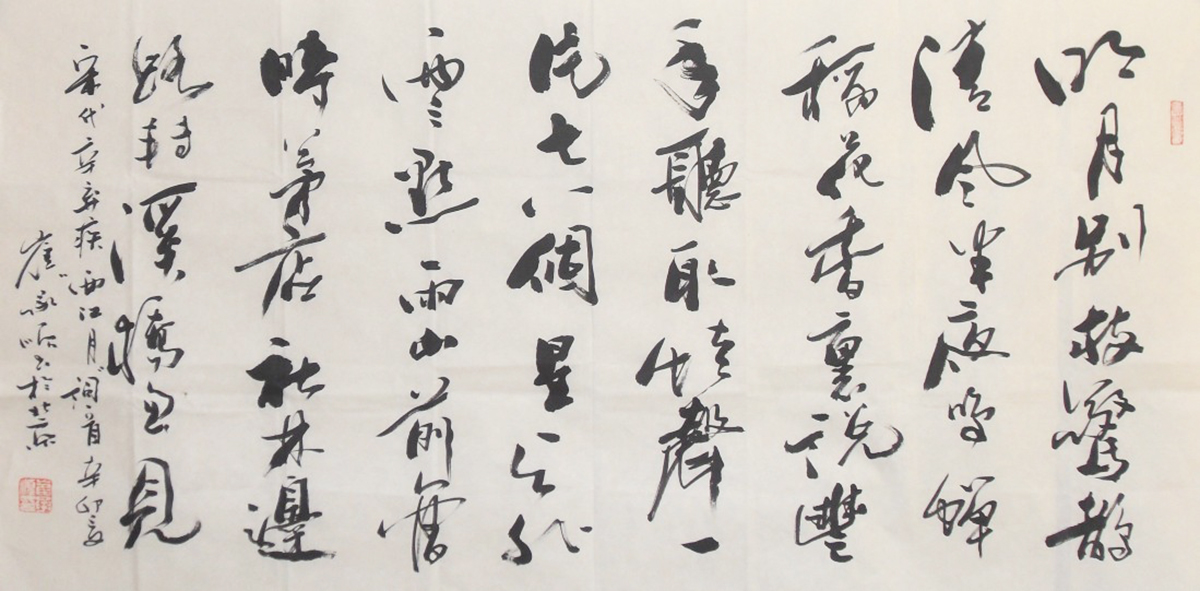 明月别枝驚鵲
清風半夜鳴蟬
稻花香裏説豐
年聽取蛙聲一
片七八個星天外
兩三點雨山前舊
時茅店社林邊
路轉溪橋忽見
宋代辛弃疾西江月詞一首 辛卯夏
崔家 书於北京